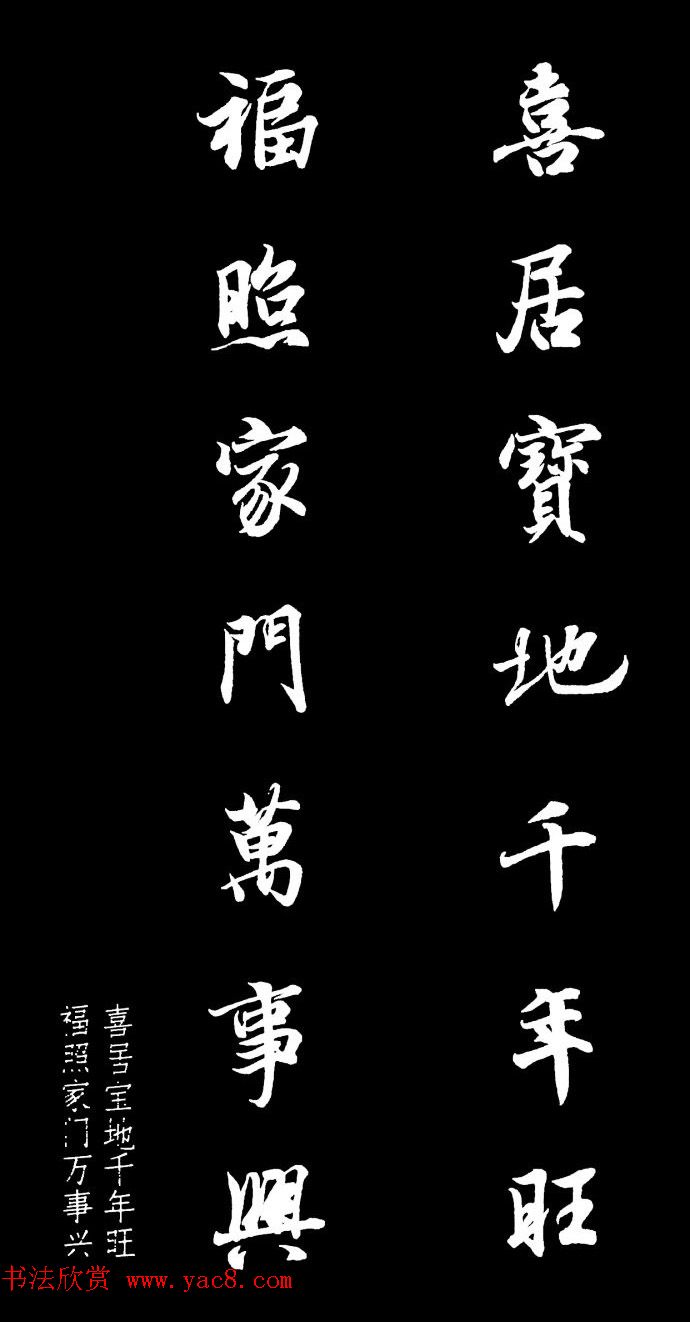 喜居寶地千年旺
福照家門萬事興
喜居宝地千年旺
福照家门万事兴
书法欣赏 www.yac8.com